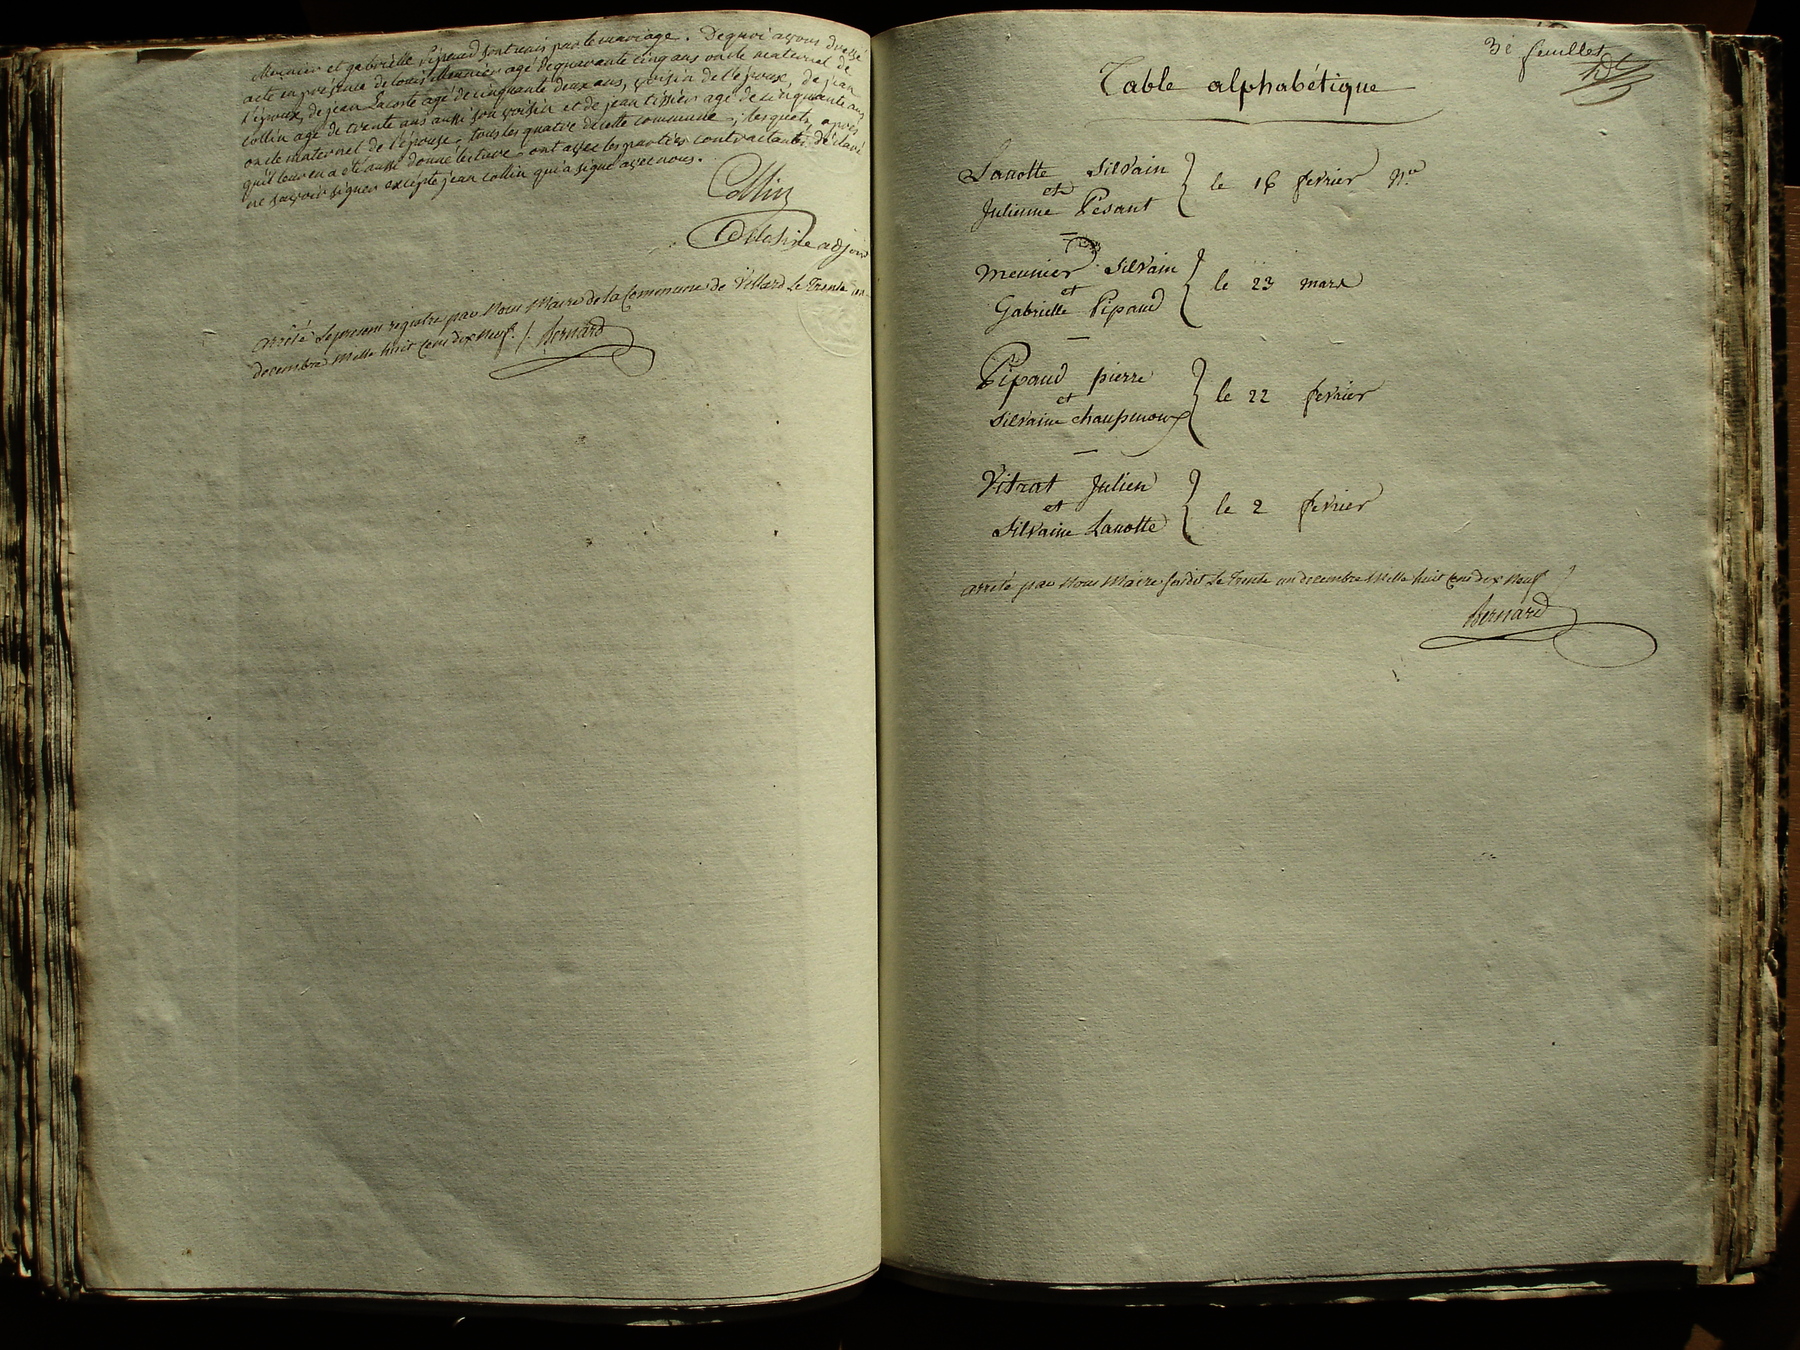 Meunier et gabrielle Pipaud sont unis par le mariage. De quoi avons dressé
acte en présence de louis Meunier agé de quarante cinq ans oncle maternel de
l'époux, de jean Lacoste agé de cinquante deux ans, voisin de l'époux, de jean
Collin agé de trente ans aussi son voisin et de jean tissier agé de cinquante ans
oncle maternel de l'épouse, tous les quatre de cette commune, lesquels, après
qu'il leur en a été aussi donné lecture ont avec les parties contractantes déclaré
ne savoir signer excepté jean collin qui a signé avec nous.
Collin
adjoint
arrêté le present registre par Nous Maire de la Commune de Villard Le Trente un
decembre Mille huit Cent dix neuf. /. Bernard
3e feuillet
Table alphabétique
Lanotte Silvain
et
Julienne Pesant
le 16 fevrier
Meunier Silvain
et
Gabrielle Pipaud
le 23 mars
Pipaud pierre
et
Silvaine chaussemoux
le 22 fevrier
Vitrat Julien
et
Silvaine Lanotte
le 2 fevrier
arrêté par Nous Maire susdit Le Trente un decembre Mille huit Cent dix Neuf
Bernard